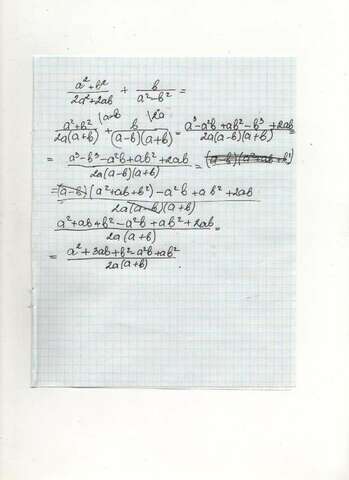 a²+b²/2a²+2ab + b/a²-b² =
a²+b²/2a(a+b) \a-b + b/(a-b)(a+b) \2a = a³-a²b+ab²-b³+2ab/2a(a-b)(a+b)
= a³-b³-a²b+ab²+2ab/2a(a-b)(a+b) =
= (a-b)(a²+ab+b²)-a²b+ab²+2ab/2a(a-b)(a+b)
a²+ab+b²-a²b+ab²+2ab/2a(a+b) =
= a²+3ab+b²-a²b+ab²/2a(a+b)